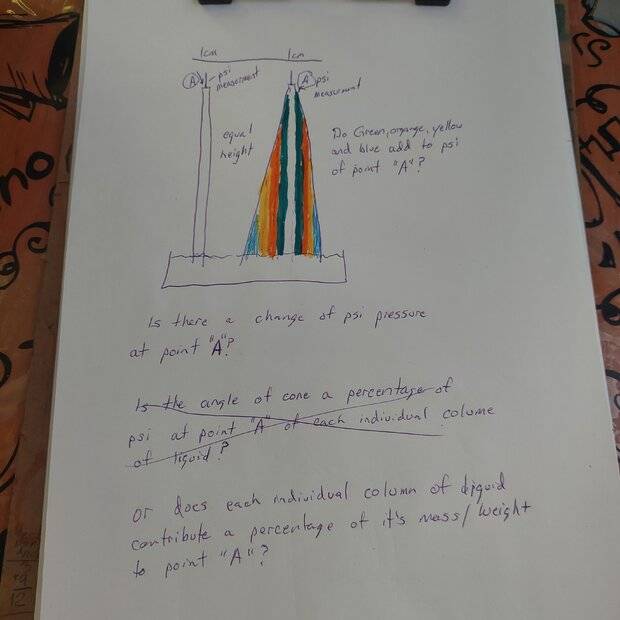 1cm 1cm
A psi
measurement
A psi
measurment
equal
height
Do Green, orange, yellow
and blue add to psi
of point "A"?
Is there a change of psi pressure
at point "A"?
Is the angle of cone a percentage of
psi at point "A" of each individual colume
of liquid?
Or does each individual column of liquid
contribute a percentage of it's mass/weight
to point "A"?